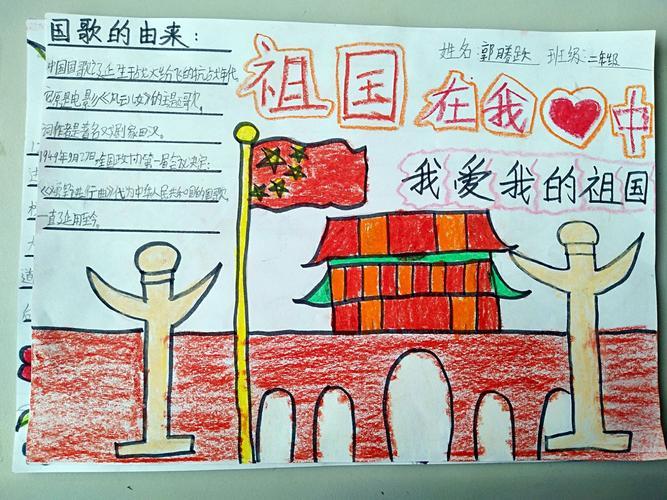 国歌的由来：
中国国歌诞生于战火纷飞的抗战年代
它原是电影《风云儿女》的主题歌。
词作者是著名戏剧家田汉。
1949年9月27日，全国政协第一届会议决定：
《义勇军进行曲》代为中华人民共和国的国歌
一直延用至今。
祖国
在我❤中
姓名：郭腾跃 班级：二年级
我爱我的祖国